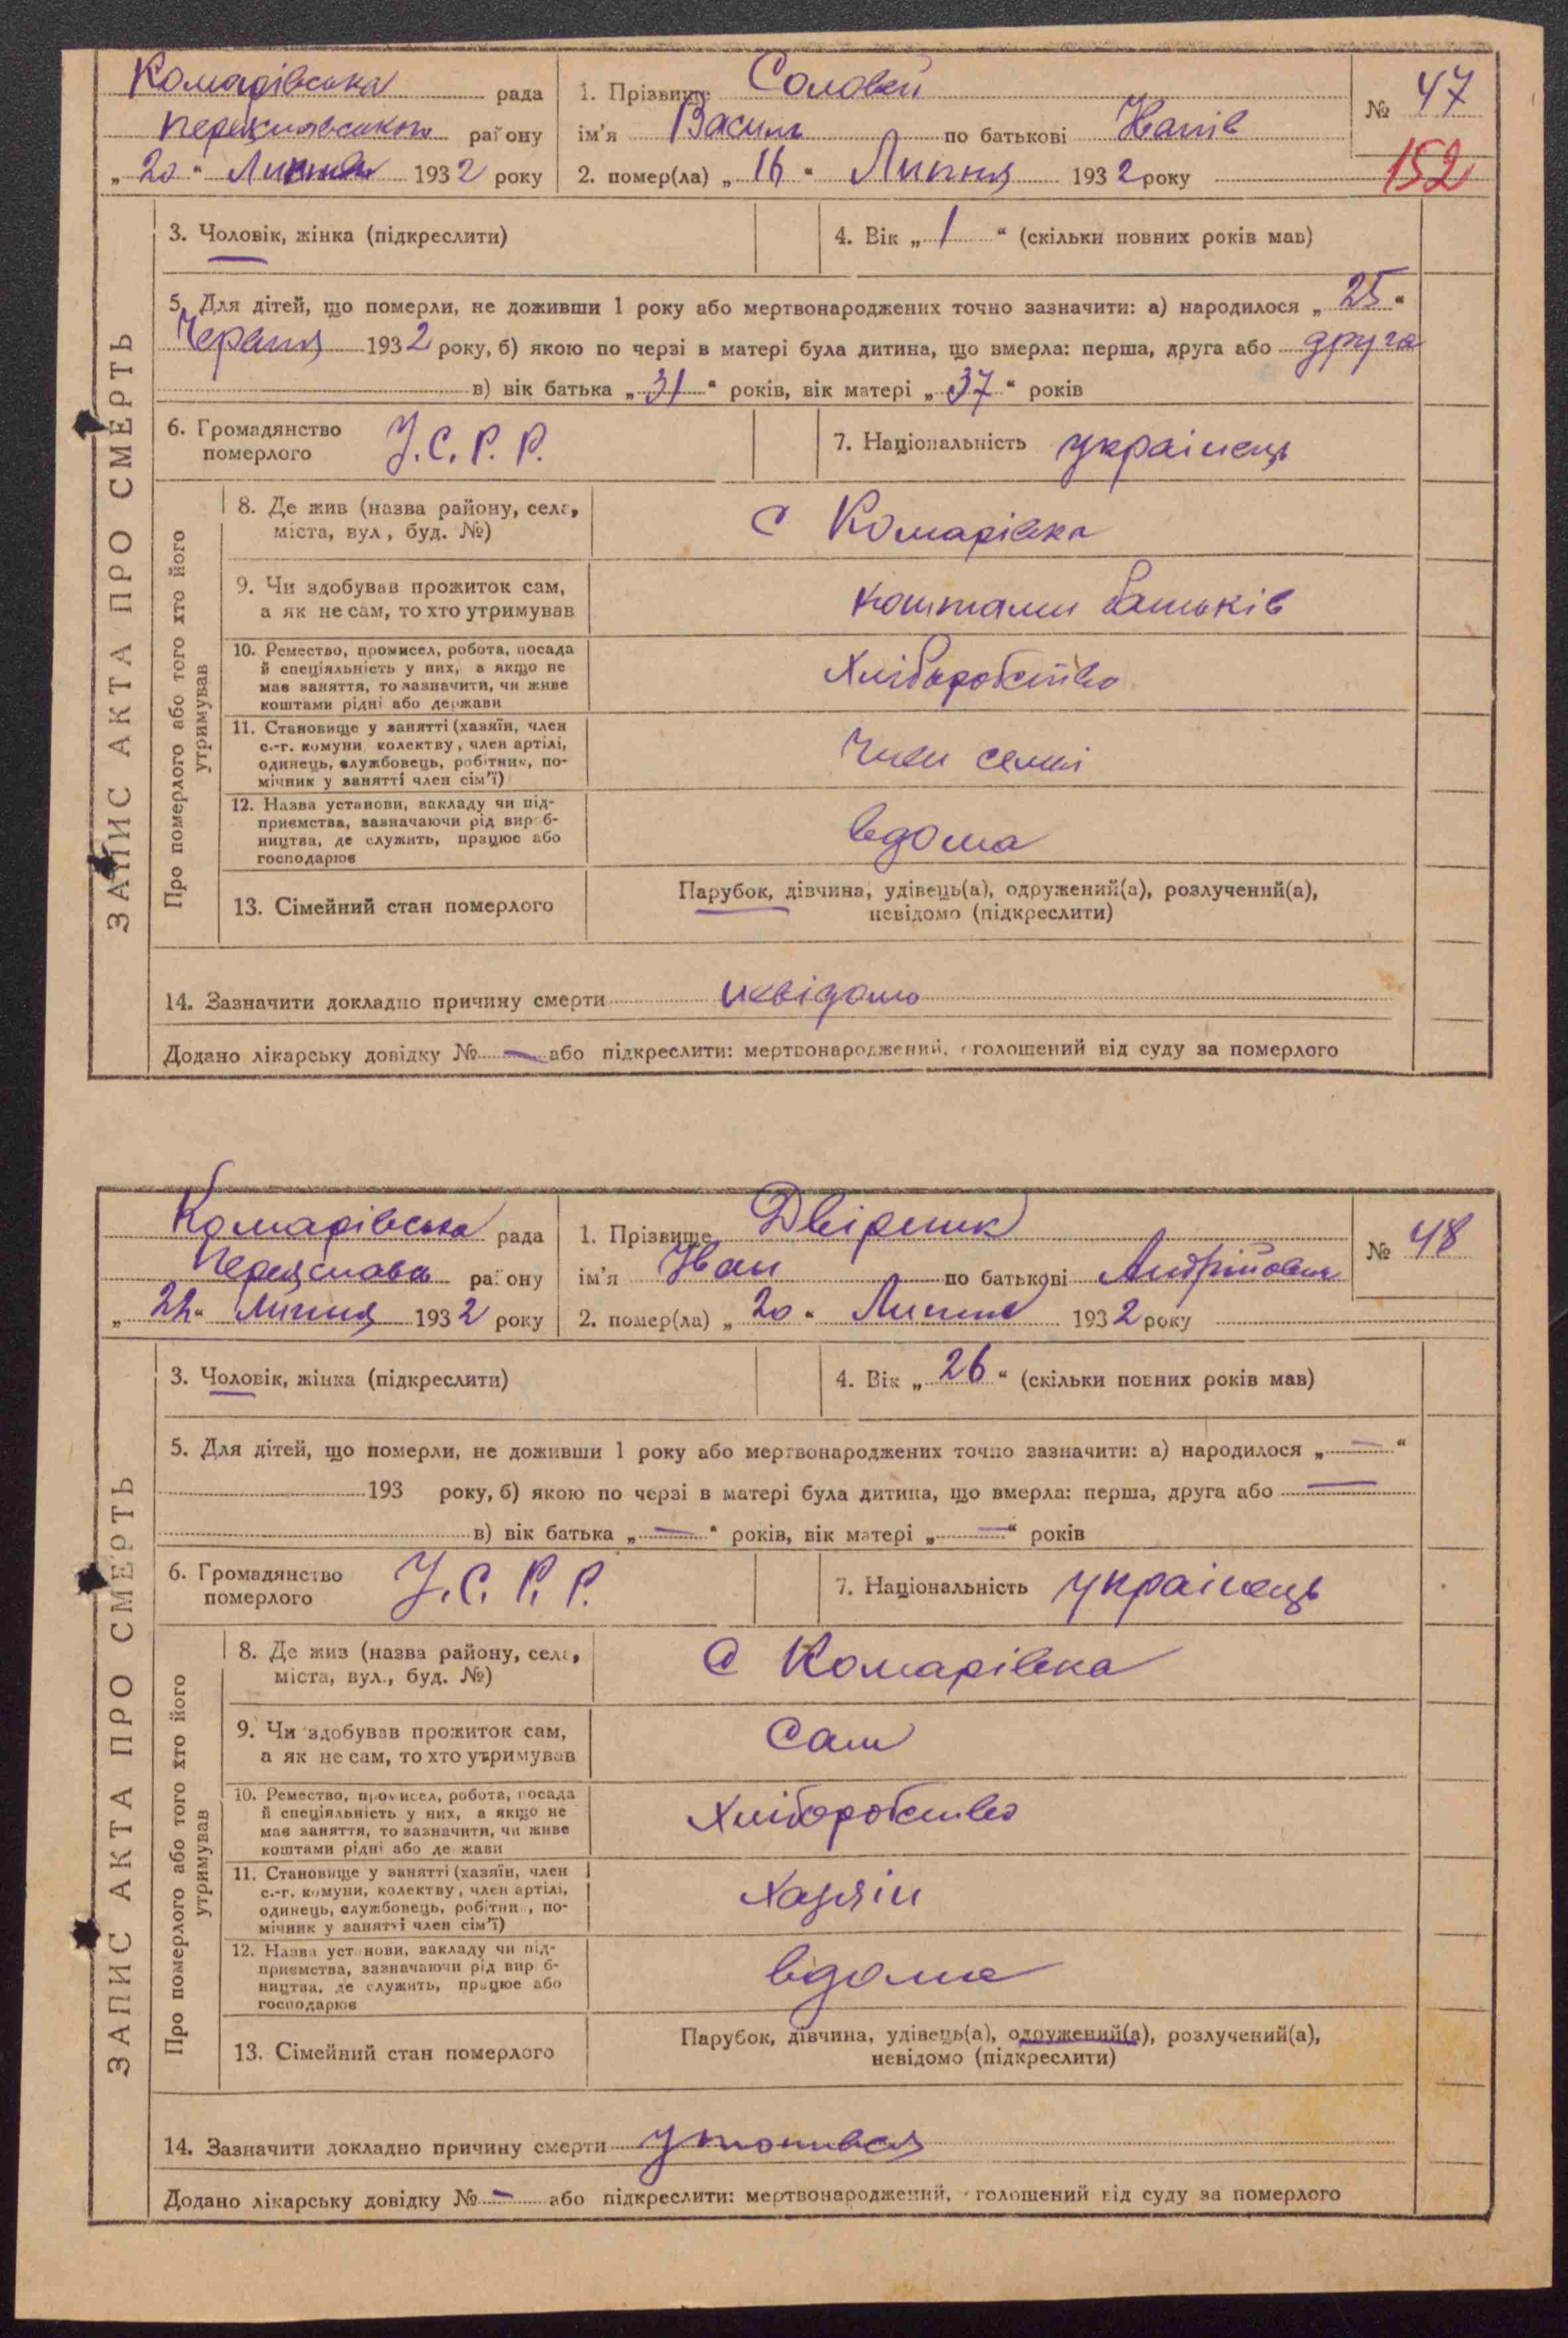 Комарівська рада
Переяславського району
„ 20 “ Липня 1932 року
1. Прізвище Соловей
ім’я Василь по батькові
2. помер(ла) „ 16 “ Липня 1932 року
№ 47
152
ЗАПИС АКТА ПРО СМЕРТЬ
3. Чоловік, жінка (підкреслити)
4. Вік „ 1 “ (скільки повних років мав)
5. Для дітей, що померли, не доживши 1 року або мертвонароджених точно зазначити: а) народилося „ 25 “
Червня 1932 року, б) якою по черзі в матері була дитина, що вмерла: перша, друга або друга
в) вік батька „ 31 “ років, вік матері „ 37 “ років
6. Громадянство
померлого У.С.Р.Р.
7. Національність українець
Про померлого або того хто його
утримував
8. Де жив (назва району, села,
міста, вул, буд. №)
с Комарівка
9. Чи здобував прожиток сам,
а як не сам, то хто утримував
коштами батьків
10. Ремество, промисел, робота, посада
й спеціяльність у них, а якщо не
має заняття, то зазначити, чи живе
коштами рідні або держави
Хліборобство
11. Становище у занятті (хазяїн, член
с.-г. комуни, колектву, член артілі,
одинець, службовець, робітник, по-
мічник у занятті член сім’ї)
Член семі
12. Назва установи, закладу чи під-
приємства, зазначаючи рід вироб-
ництва, де служить, працює або
господарює
вдома
13. Сімейний стан померлого
Парубок, дівчина, удівець(а), одружений(а), розлучений(а),
невідомо (підкреслити)
14. Зазначити докладно причину смерти невідомо
Додано лікарську довідку № — або підкреслити: мертвонароджений, оголошений від суду за померлого
Комарівська рада
Переяславськ району
„ 22 “ Липня 1932 року
1. Прізвище Двірник
ім’я Іван по батькові Андрійович
2. помер(ла) „ 20 “ Липня 1932 року
№ 48
ЗАПИС АКТА ПРО СМЕРТЬ
3. Чоловік, жінка (підкреслити)
4. Вік „ 26 “ (скільки повних років мав)
5. Для дітей, що померли, не доживши 1 року або мертвонароджених точно зазначити: а) народилося „ — “
193 року, б) якою по черзі в матері була дитина, що вмерла: перша, друга або —
в) вік батька „ — “ років, вік матері „ — “ років
6. Громадянство
померлого У.С.Р.Р.
7. Національність українець
Про померлого або того хто його
утримував
8. Де жив (назва району, села,
міста, вул., буд. №)
с Комарівка
9. Чи здобував прожиток сам,
а як не сам, то хто утримував
Сам
10. Ремество, промисел, робота, посада
й спеціяльність у них, а якщо не
має заняття, то зазначити, чи живе
коштами рідні або держави
Хліборобство
11. Становище у занятті (хазяїн, член
с.-г. комуни, колектву, член артілі,
одинець, службовець, робітник, по-
мічник у занятті член сім’ї)
Хазяін
12. Назва установи, закладу чи під-
приємства, зазначаючи рід вироб-
ництва, де служить, працює або
господарює
вдома
13. Сімейний стан померлого
Парубок, дівчина, удівець(а), одружений(а), розлучений(а),
невідомо (підкреслити)
14. Зазначити докладно причину смерти утопився
Додано лікарську довідку № — або підкреслити: мертвонароджений, оголошений від суду за померлого